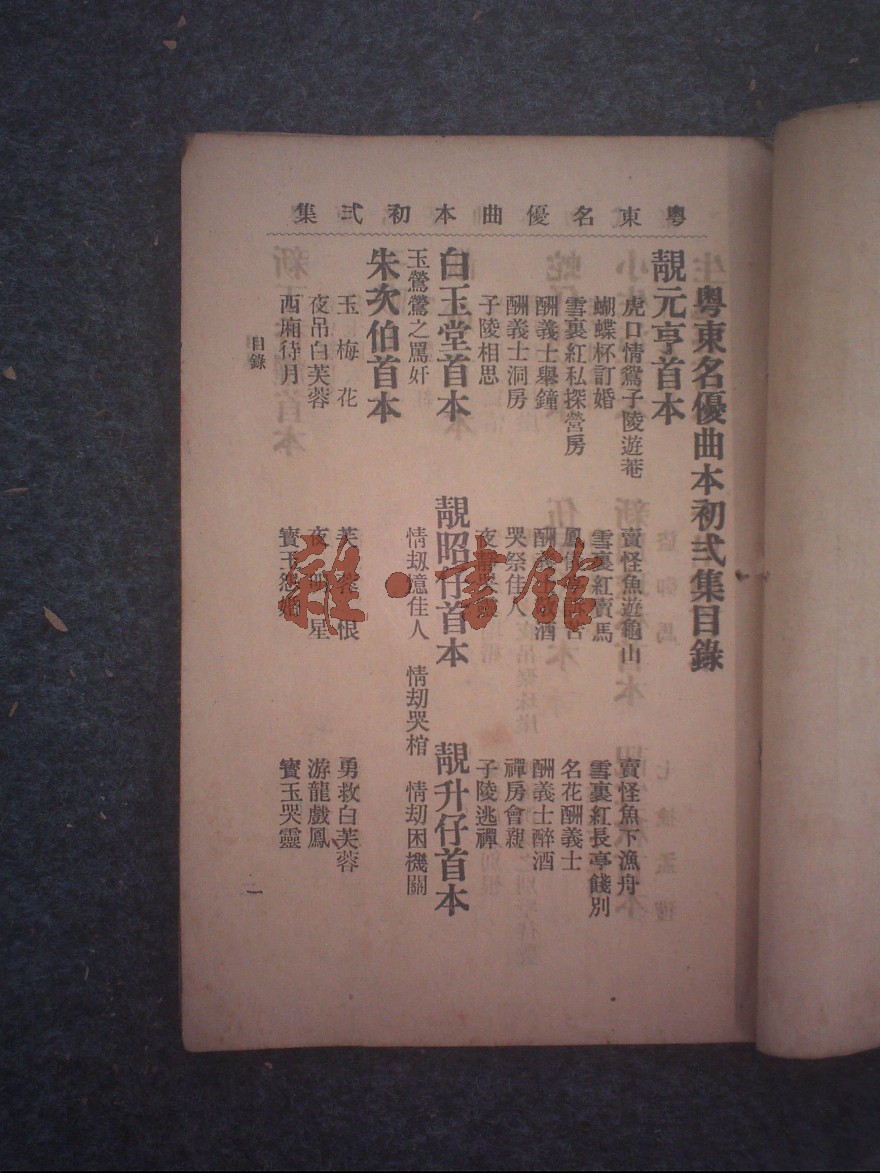 粵東名優曲本初弍集
粵東名優曲本初弍集目錄
靚元亨首本
虎口情鴛子陵遊菴 賣怪魚遊龜山 賣怪魚下漁舟
蝴蝶杯訂婚 雪裏紅賣馬 雪裏紅長亭餞別
雪裏紅私探營房 名花酬義士
酬義士舉鐘 酬義士 酒 酬義士醉酒
酬義士洞房 哭祭佳人 禪房會親
子陵相思 夜 子陵逃禪
白玉堂首本 靚昭仔首本 靚升仔首本
玉鶯鶯之罵奸 情劫憶佳人 情劫哭棺 情劫困機關
朱次伯首本
玉梅花 芙蓉恨 勇救白芙蓉
夜吊白芙蓉 夜 星 游龍戲鳳
西廂待月 寳玉怨婚 寳玉哭靈
目錄
一
雜·書館